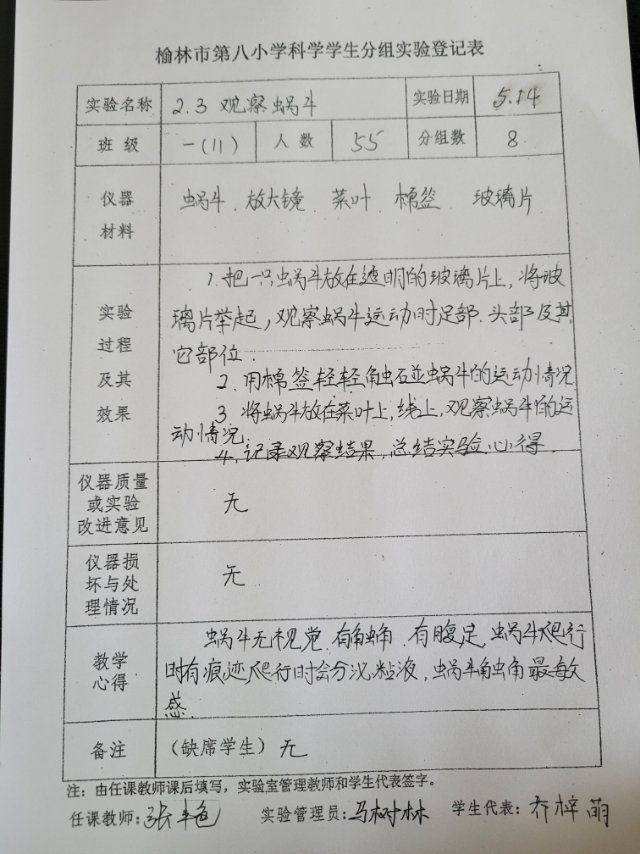 榆林市第八小学科学学生分组实验登记表
实验名称 2.3 观察蜗牛 实验日期 5.14
班级 一(11) 人数 55 分组数 8
仪器材料 蜗牛、放大镜、菜叶、棉签、玻璃片
实验过程及其效果
1.把一只蜗牛放在透明的玻璃片上,将玻
璃片举起,观察蜗牛运动时足部、头部及其
它部位.
2.用棉签轻轻触碰蜗牛的运动情况
3.将蜗牛放在菜叶上,线上,观察蜗牛的运
动情况.
4.记录观察结果,总结实验心得.
仪器质量或实验改进意见 无
仪器损坏与处理情况 无
教学心得
蜗牛无视觉.有触角.有腹足.蜗牛爬行
时有痕迹爬行时会分泌粘液,蜗牛触角最敏
感.
备注 (缺席学生)无
注:由任课教师课后填写,实验室管理教师和学生代表签字。
任课教师:张艳 实验管理员:马树林 学生代表:乔梓萌